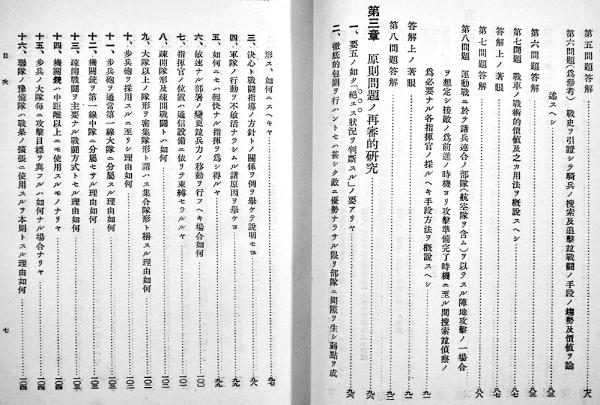 第五問題答解
第六問題(爲參考) 戰史ヲ引證シテ騎兵ノ搜索及追擊竝戰鬪ノ手段ノ趨勢及價値ヲ論
述スヘシ
第六問題答解
第七問題 戰車ノ戰術的價値及之カ用法ヲ槪說スヘシ
答解上ノ著眼
第七問題答解
第八問題 運動戰ニ於テ諸兵連合ノ部隊(航空隊ヲ含ム)ヲ以テスル陣地攻擊ノ一場合
ヲ想定シ接敵ノ爲前進ノ時機ヨリ攻擊準備完了時機ニ至ル間搜索竝偵察ノ
爲必要ナル各指揮官ノ採ルヘキ手段方法ヲ槪說スヘシ
答解上ノ著眼
第八問題答解
第三章 原則問題ノ再審的硏究
一、要五ノ如ク「絕エス狀況ヲ判斷スル」ノ要アリヤ
二、徹底的包圍ヲ行ハントセハ甚シク敵ニ優勢ナラサル限リ部隊ニ間隙ヲ生シ弱點ヲ成
形ス、如何ニスヘキヤ 九七
三、決心ト戰鬪指導ノ方針トノ關係ヲ例ヲ擧ケテ說明セヨ 九八
四、軍隊ノ行動ヲ不敏活ナラシムル諸原因ヲ擧ケヨ 九九
五、如何ニセハ輕快ナル指揮ヲ爲シ得ルヤ 九九
六、敏速ナル部署ノ變更竝兵力ノ移動ヲ行フヘキ場合如何 一〇〇
七、指揮官ノ位置ハ通信設備ニ依リテ束縛セラルルヤ 一〇一
八、疎開隊形及疎開戰鬪トハ如何 一〇一
九、大隊以上ノ隊形ヲ審集隊形ト謂ハス集合隊形ト稱スル理由如何
十、步兵砲ヲ採用スルニ至リシ理由如何
十一、步兵砲ヲ通常第一線大隊ニ分屬スル理由如何
十二、機關銃ヲ第一線中隊ニ分屬セサル理由如何
十三、疎開戰鬪ヲ主要ナル戰鬪方式トセル理由如何
十四、機關銃ハ中距離以上ニモ使用スルモノナリヤ
十五、步兵ノ大隊每ニ攻擊目標ヲ與フルハ如何ナル場合ナリヤ 一〇四
十六、聯隊ノ豫備隊ハ戰果ノ擴張ニ使用スルヲ本則トスル理由如何 一〇四
目次
七